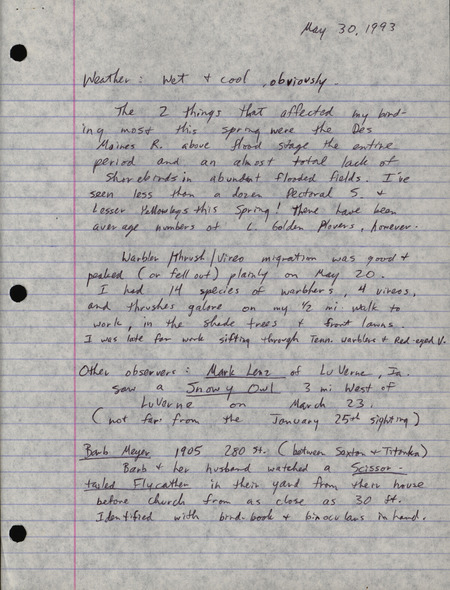 May 30, 1993
Weather: Wet + cool, obviously.
The 2 things that affected my bird-
ing most this spring were the Des
Moines R. above flood stage the entire
period and an almost total lack of
Shorebirds in abundent flooded fields. I've
seen less than a dozen Pectoral S. +
Lesser Yellowlegs this Spring! There have been
average numbers of L. Golden Plovers, however.
Warbler/thrush/vireo migration was good +
peaked (or fell out) plainly on May 20.
I had 14 species of warblers, 4 vireos,
and thrushes galore on my 1/2 mi walk to
work, in the shade trees + front lawns.
I was late for work sifting through Tenn. warblers + Red-eyed V.
Other observers: Mark Lenz of LuVerne, Ia.
saw a Snowy Owl 3 mi West of
LuVerne on March 23.
(not far from the January 25th sighting)
Barb Meyer 1905 280 St. (between Sexton + Titonka)
Barb + her husband watched a Scissor-
tailed Flycatcher in their yard from their house
before church from as close as 30 ft.
Identified with bird-book + binoculars in hand.